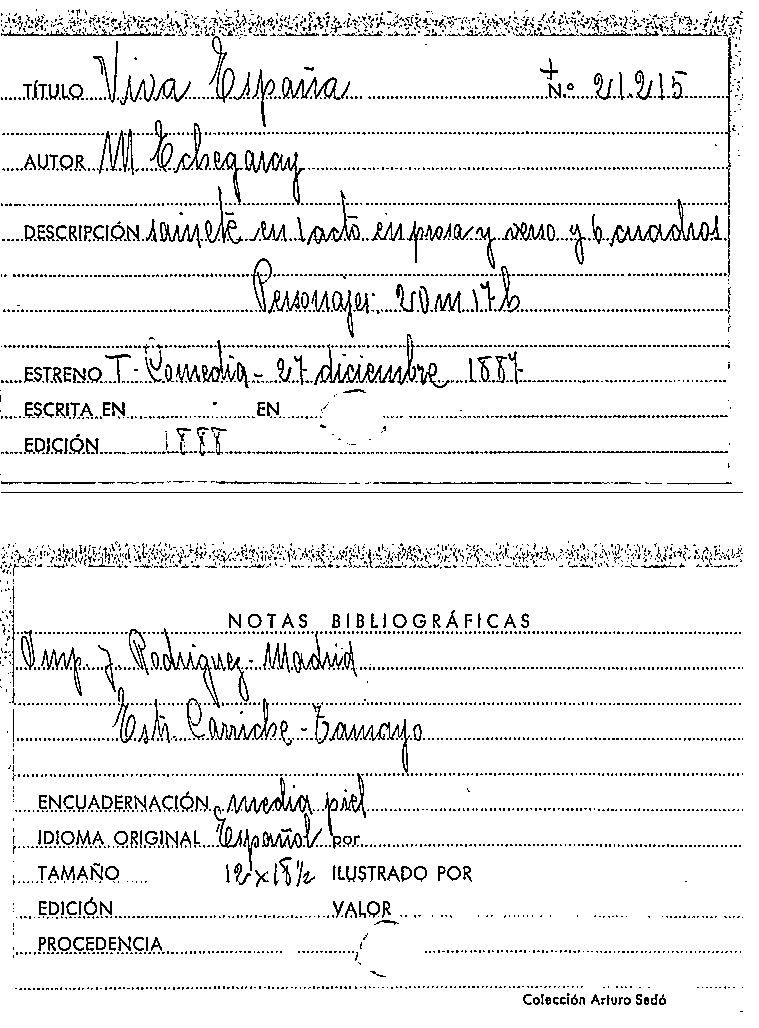 TÍTULO Viva España + N.º 21.215
AUTOR M Echegaray
DESCRIPCIÓN sainete en 1 acto en prosa y verso y 6 cuadros
Personajes: 20 m 17 h
ESTRENO T. Comedia - 27 diciembre 1887
ESCRITA EN EN
EDICIÓN 1888
NOTAS BIBLIOGRÁFICAS
Imp. J. Rodriguez - Madrid
Estr. Carriche - Tamayo
ENCUADERNACIÓN media piel
IDIOMA ORIGINAL Español por
TAMAÑO 12 x 18½ ILUSTRADO POR
EDICIÓN VALOR
PROCEDENCIA
Colección Arturo Sedó